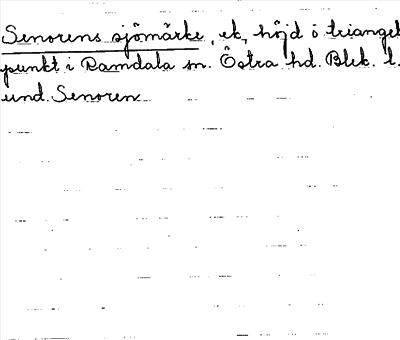 Senorens sjömärke, ek, höjd o triangel
punkt i Ramdala sn. Östra hd. Blek. l.
und. Senoren